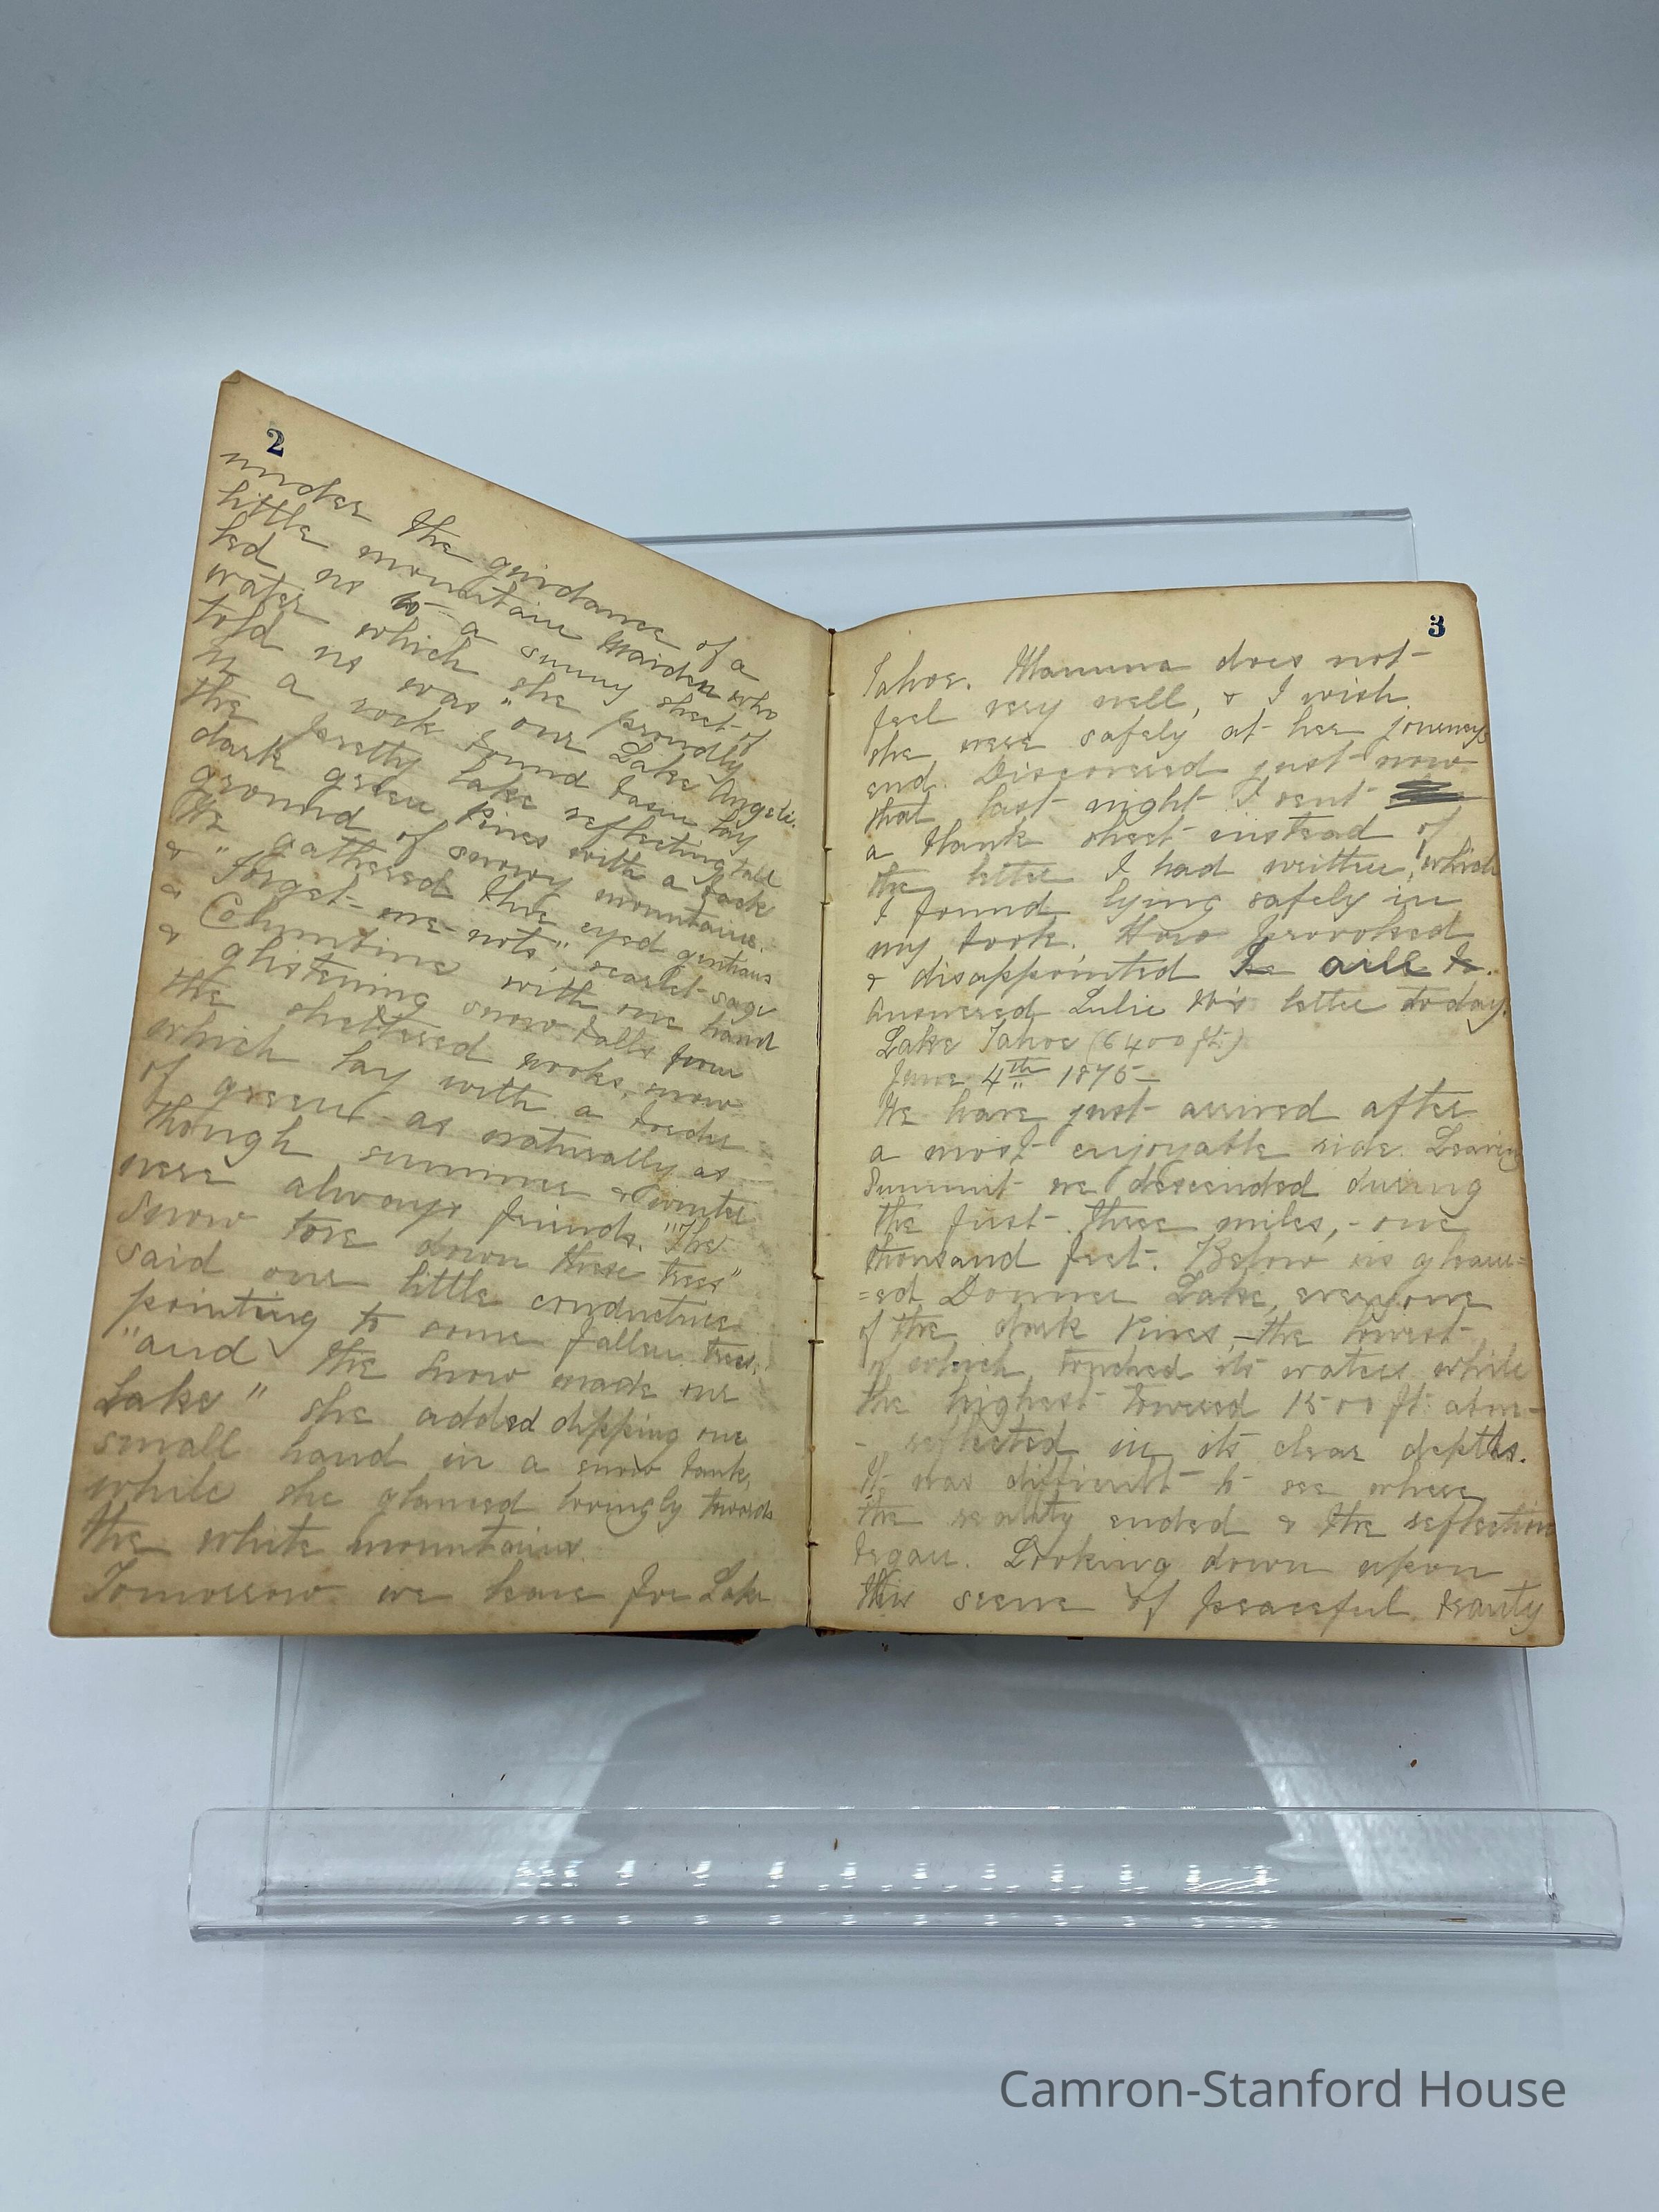 2
under the guidance of a
little mountain maiden who
led us to a sunny sheet of
water which she proudly
told us was "our Lake Angeli.
In a rock bound basin lay
the pretty lake reflecting tall
dark green pines with a back
ground of snowy mountains.
We gathered blue eyed gentians
& "forget-me-nots", scarlet-sage
& Columbine with one hand
& glistening snow balls from
the sheltered nooks, snow
which lay with a border
of green - as naturally as
though summer & winter
were always friends. "The
snow tore down these trees"
said our little conductress
pointing to some fallen trees,
"and the snow made our
Lake" she added dipping one
small hand in a snow bank,
while she glanced lovingly towards
the white mountains.
Tomorrow we leave for Lake
3
Tahoe. Mamma does not
feel very well, & I wish
she were safely at her journeys
end. Discovered just now
that last night I sent
a blank sheet instead of
the letter I had written, which
I found lying safely in
my book. How provoked
& disappointed
Answered Lulie letter today.
Lake Tahoe (6400 ft.)
June 4th 1875
We have just arrived after
a most enjoyable ride. Leaving
Summit we descended during
the first three miles, - one
thousand feet. Below us gleam=
=ed Donner Lake, everyone
of the dark Pines, - the lowest
of which touched its waters while
the highest towered 1500 ft. above
- reflected in its clear depths.
It was difficult to see where
the reality ended & the reflection
began. Looking down upon
this scene of peaceful beauty
Camron-Stanford House